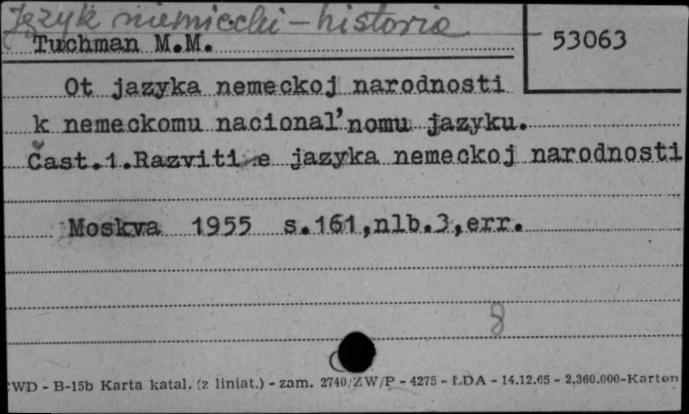 Język niemiecki - historia
Tuchman M.M.
53063
Ot jazyka nemeckoj narodnosti
k nemeckomu nacional'nomu jazyku.
Čast.1.Razvitie jazyka nemeckoj narodnosti
Moskva 1955 s.161,nlb.3,err.
8
WD - B-15b Karta katal. (z liniat.) - zam. 2740/ZW/P - 4275 - LDA - 14.12.65 - 2,360.000-Karton